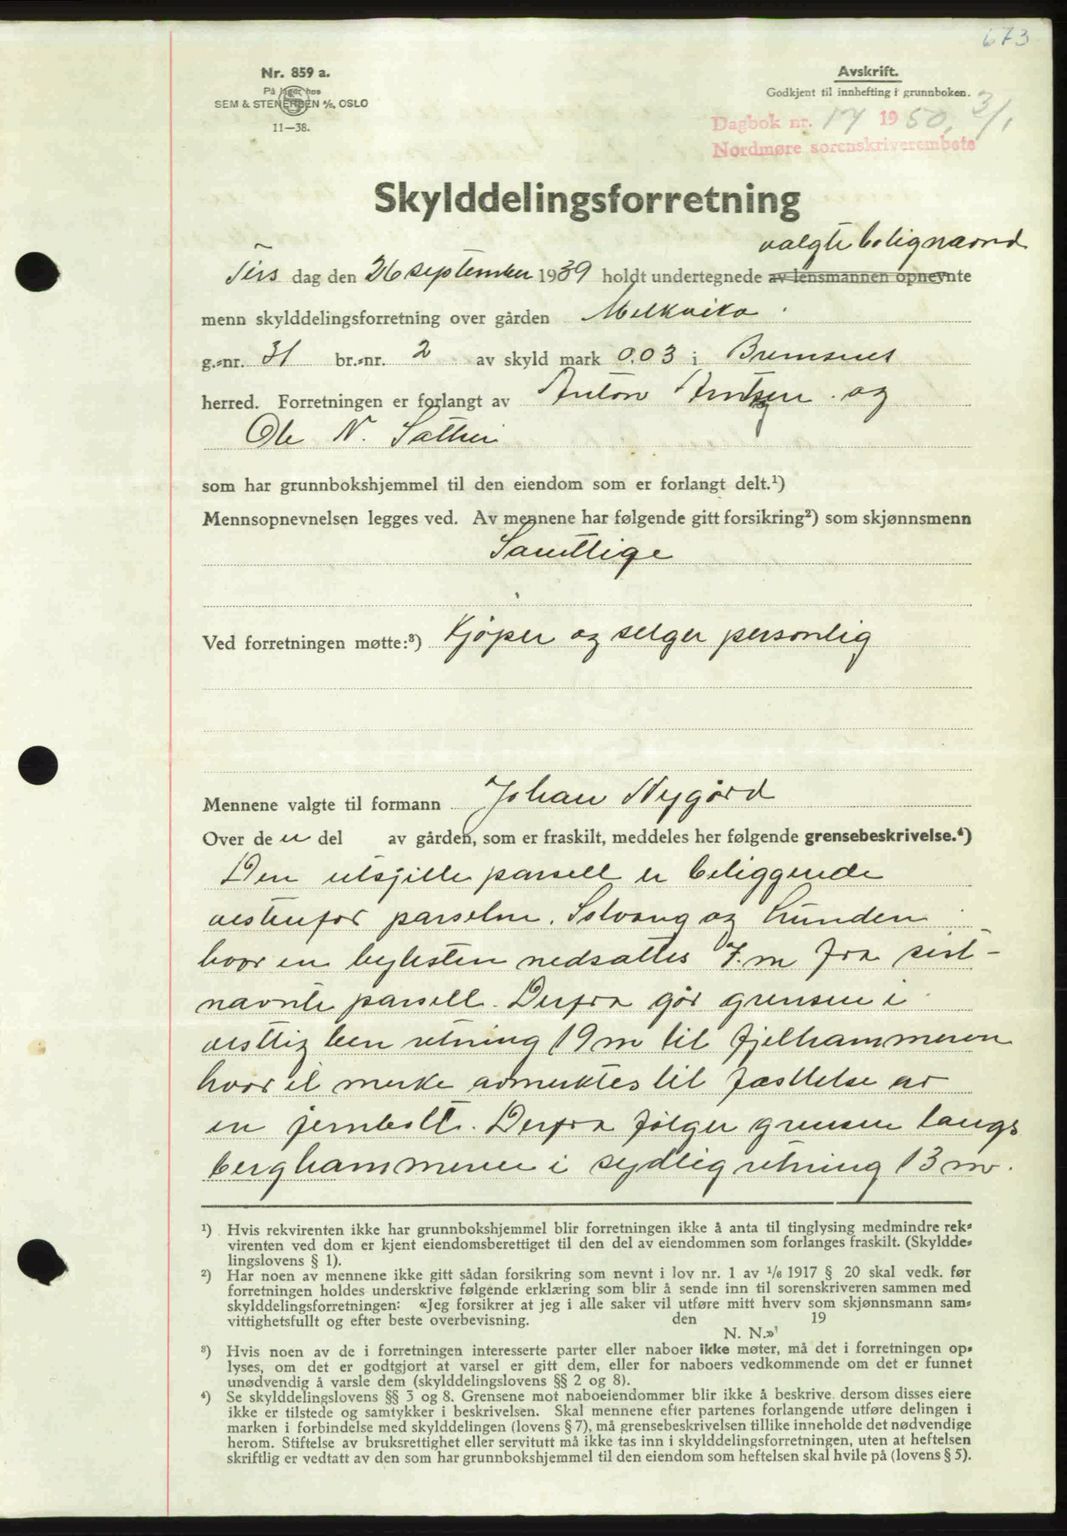 673
Nr. 859 a.
På lager hos
SEM & STENERSEN A/S, OSLO
11—38.
Avskrift.
Godkjent til innhefting i grunnboken.
Dagbok nr. 17 1950, 3/1
Nordmøre sorenskriverembete
Skylddelingsforretning
valgte bolignævnd
Tirs dag den 26 september 1939 holdt undertegnede av lensmannen opnevnte
menn skylddelingsforretning over gården Melkvika
g.-nr. 31 br.-nr. 2 av skyld mark 0,03 i Bremsnes
herred. Forretningen er forlangt av Anton Arntzen og
Ole N. Sæther
som har grunnbokshjemmel til den eiendom som er forlangt delt.¹)
Mennsopnevnelsen legges ved. Av mennene har følgende gitt forsikring²) som skjønnsmenn
Samtlige
Ved forretningen møtte:³) Kjøper og selger personlig
Mennene valgte til formann Johan Nygård
Over de n del av gården, som er fraskilt, meddeles her følgende grensebeskrivelse.⁴)
Den utsjille parsell er beliggende
vestenfor parselne. Solvang og Lunden
hvor en bylesten nedsattes 7. m fra sist-
navnte parsell. Derfra går grensen i
vesttig ben retning 19 m til fjelhammeren
hvor et merke avmerktes til fæsttelse av
en jernbolt. Derfra følger grensen langs
berghammeren i sydlig retning 13 m.
¹) Hvis rekvirenten ikke har grunnbokshjemmel blir forretningen ikke å anta til tinglysing medmindre rek-
virenten ved dom er kjent eiendomsberettiget til den del av eiendommen som forlanges fraskilt. (Skyldde-
lingslovens § 1).
²) Har noen av mennene ikke gitt sådan forsikring som nevnt i lov nr. 1 av 1/6 1917 § 20 skal vedk. før
forretningen holdes underskrive følgende erklæring som blir å sende inn til sorenskriveren sammen med
skylddelingsforretningen: «Jeg forsikrer at jeg i alle saker vil utføre mitt hverv som skjønnsmann sam-
vittighetsfullt og efter beste overbevisning. den 19
N. N.»
³) Hvis noen av de i forretningen interesserte parter eller naboer ikke møter, må det i forretningen op-
lyses, om det er godtgjort at varsel er gitt dem, eller for naboers vedkommende om det er funnet
unødvendig å varsle dem (skylddelingslovens §§ 2 og 8).
⁴) Se skylddelingslovens §§ 3 og 8. Grensene mot naboeiendommer blir ikke å beskrive dersom disses eiere
ikke er tilstede og samtykker i beskrivelsen. Skal mennene efter partenes forlangende utføre delingen i
marken i forbindelse med skylddelingen (lovens § 7), må grensebeskrivelsen tillike inneholde det nødvendige
herom. Stiftelse av bruksrettighet eller servitutt må ikke tas inn i skylddelingsforretningen, uten at heftelsen
skriftlig er vedtatt av den som har grunnbokshjemmel til den eiendom som heftelsen skal hvile på (lovens § 5).